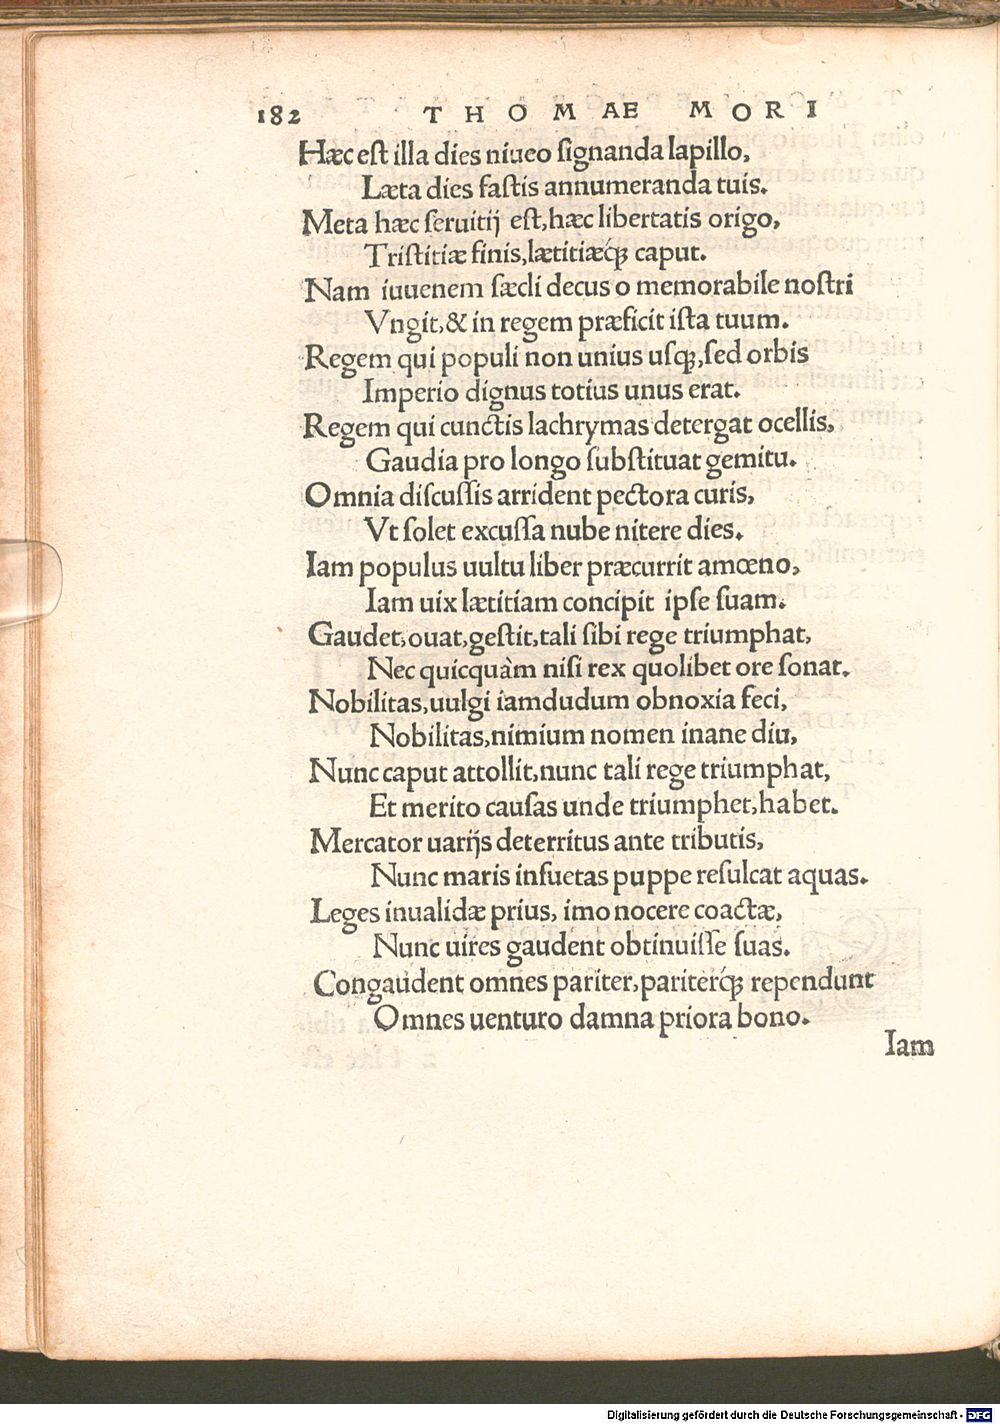 182 THOMAE MORI
Hæc est illa dies niueo ſignanda lapillo,
Læta dies faſtis annumeranda tuis.
Meta hæc ſeruitij eſt,hæc libertatis origo,
Triſtitiæ finis,lætitiæq́ꝫ caput.
Nam iuuenem ſæcli decus o memorabile noſtri
Vngit,& in regem præficit iſta tuum.
Regem qui populi non unius uſqꝫ,ſed orbis
Imperio dignus totius unus erat.
Regem qui cunctis lachrymas detergat ocellis,
Gaudia pro longo ſubſtituat gemitu.
Omnia diſcuſſis arrident pectora curis,
Vt ſolet excuſſa nube nitere dies.
Iam populus uultu liber præcurrit amœno,
Iam uix lætitiam concipit ipſe ſuam.
Gaudet,ouat,geſtit,tali ſibi rege triumphat,
Nec quicquàm niſi rex quolibet ore ſonat.
Nobilitas,uulgi iamdudum obnoxia feci,
Nobilitas,nimium nomen inane diu,
Nunc caput attollit,nunc tali rege triumphat,
Et merito cauſas unde triumphet,habet.
Mercator uarijs deterritus ante tributis,
Nunc maris inſuetas puppe reſulcat aquas.
Leges inualidæ prius, imo nocere coactæ,
Nunc uires gaudent obtinuiſſe ſuas.
Congaudent omnes pariter,pariterq́ꝫ rependunt
Omnes uenturo damna priora bono.
Iam
Digitalisierung gefördert durch die Deutsche Forschungsgemeinschaft - DFG